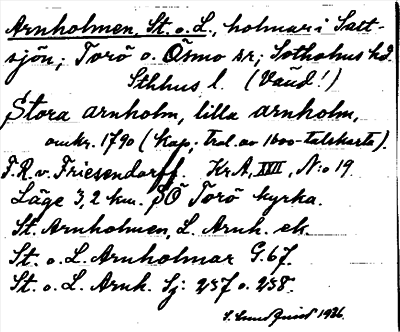 Arnholmen, St. o. L., holmar i Satt-
sjön; Torö o. Ösmo sr; Sotholms hd.
Sthlms l. (Vänd!)
Stora arnholm, lilla arnholm,
omkr. 1790 (kap; trol. av 1600-talskarta).
F.R.v. Friesendorff. Kr.A, XXII, N:o 19.
Läge 3,2 km. SÖ Torö kyrka.
St. Arnholmen, L. Arnh. ek.
St. o. L. Arnholmar G.67.
St. o. L. Arnh. Sj: 237 o. 238.
1926.